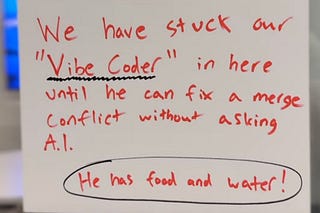 We have stuck our
"Vibe Coder" in here
until he can fix a merge
conflict without asking
A.I.
He has food and water!